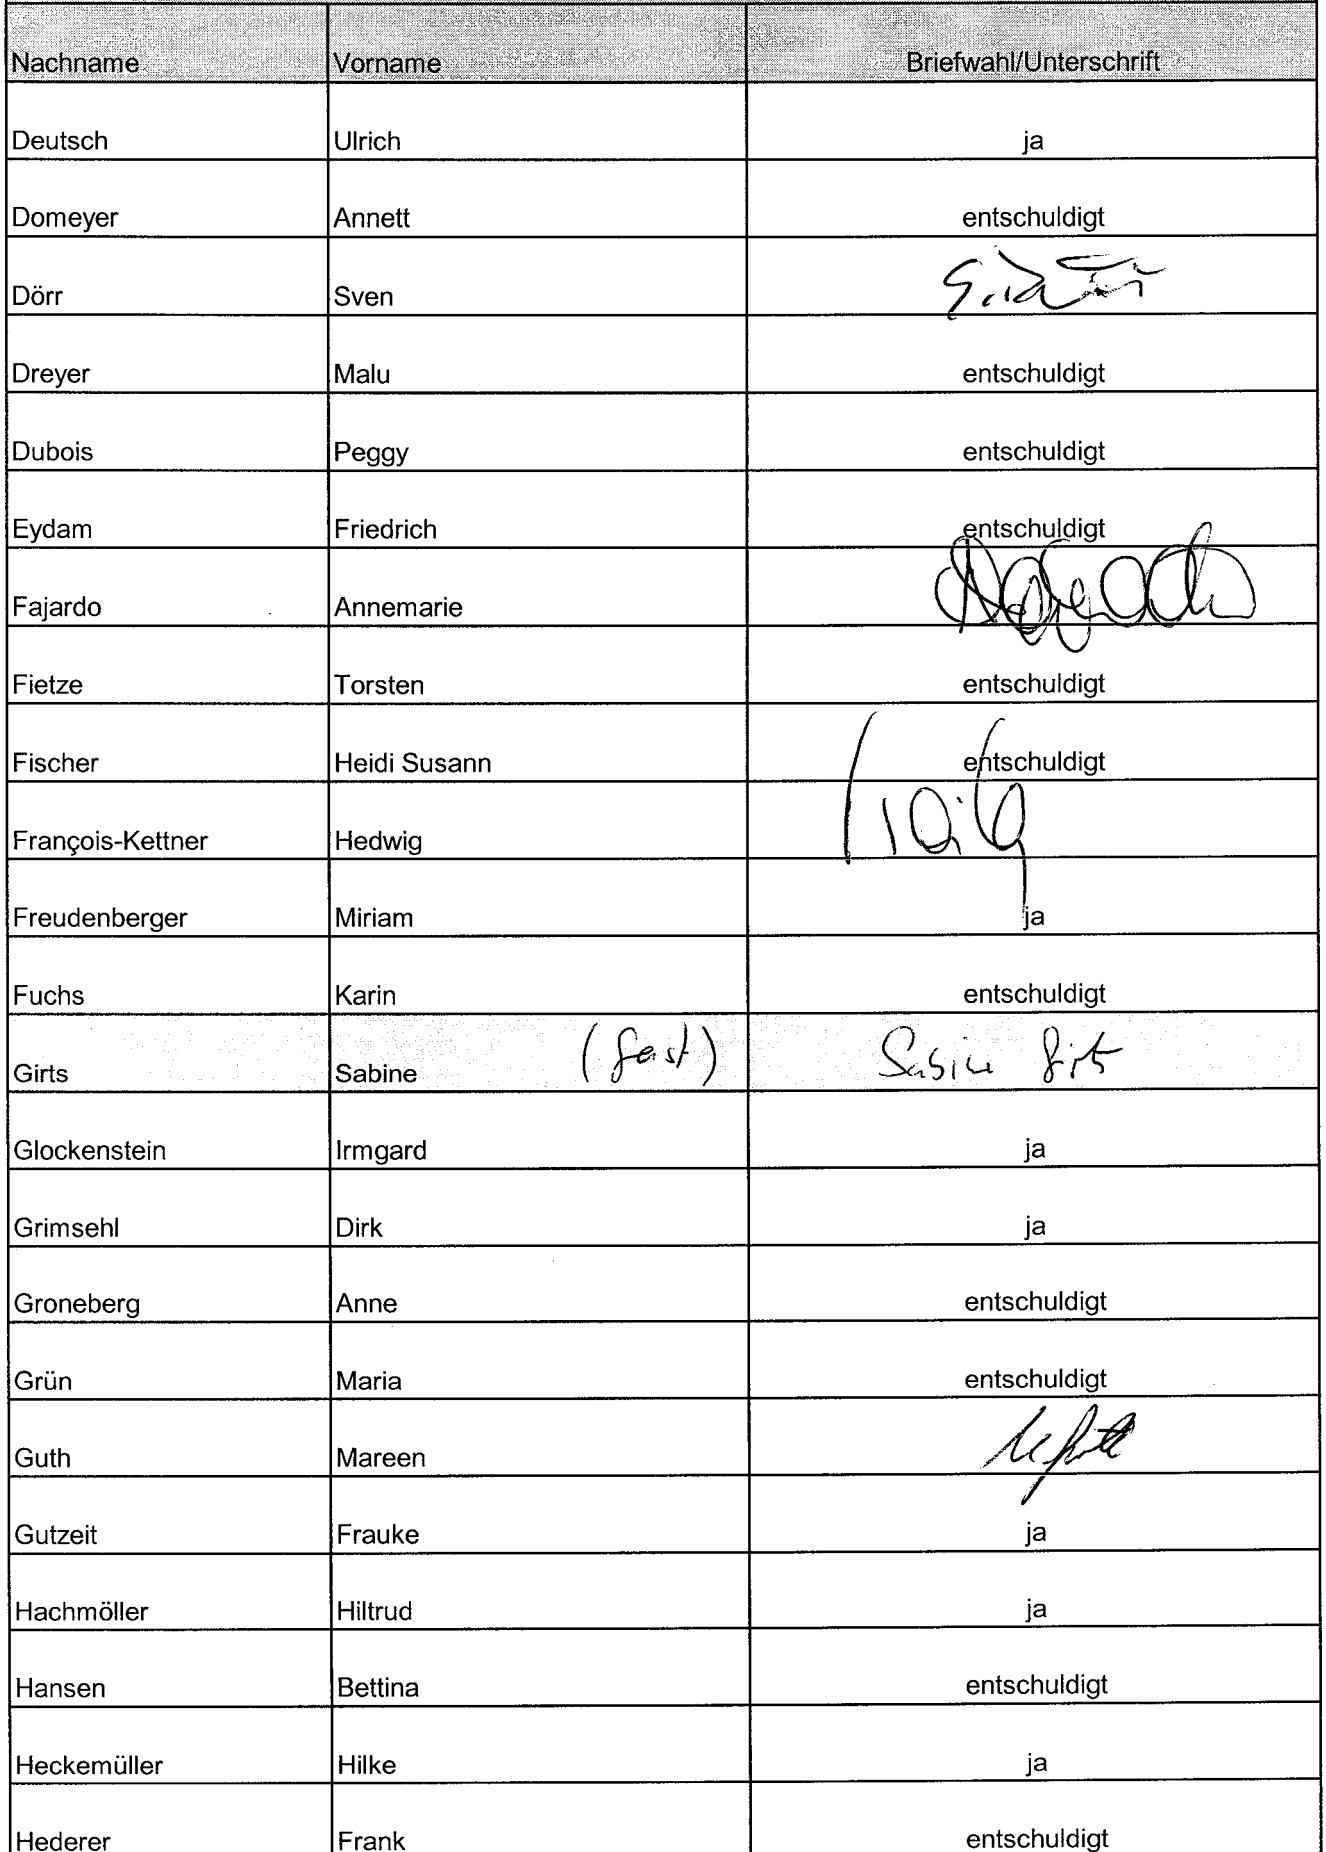 Nachname Vorname Briefwahl/Unterschrift
Deutsch Ulrich ja
Domeyer Annett entschuldigt
Dörr Sven
Dreyer Malu entschuldigt
Dubois Peggy entschuldigt
Eydam Friedrich entschuldigt
Fajardo Annemarie
Fietze Torsten entschuldigt
Fischer Heidi Susann entschuldigt
François-Kettner Hedwig
Freudenberger Miriam ja
Fuchs Karin entschuldigt
Girts Sabine (Gast) Sabine Girts
Glockenstein Irmgard ja
Grimsehl Dirk ja
Groneberg Anne entschuldigt
Grün Maria entschuldigt
Guth Mareen
Gutzeit Frauke ja
Hachmöller Hiltrud ja
Hansen Bettina entschuldigt
Heckemüller Hilke ja
Hederer Frank entschuldigt